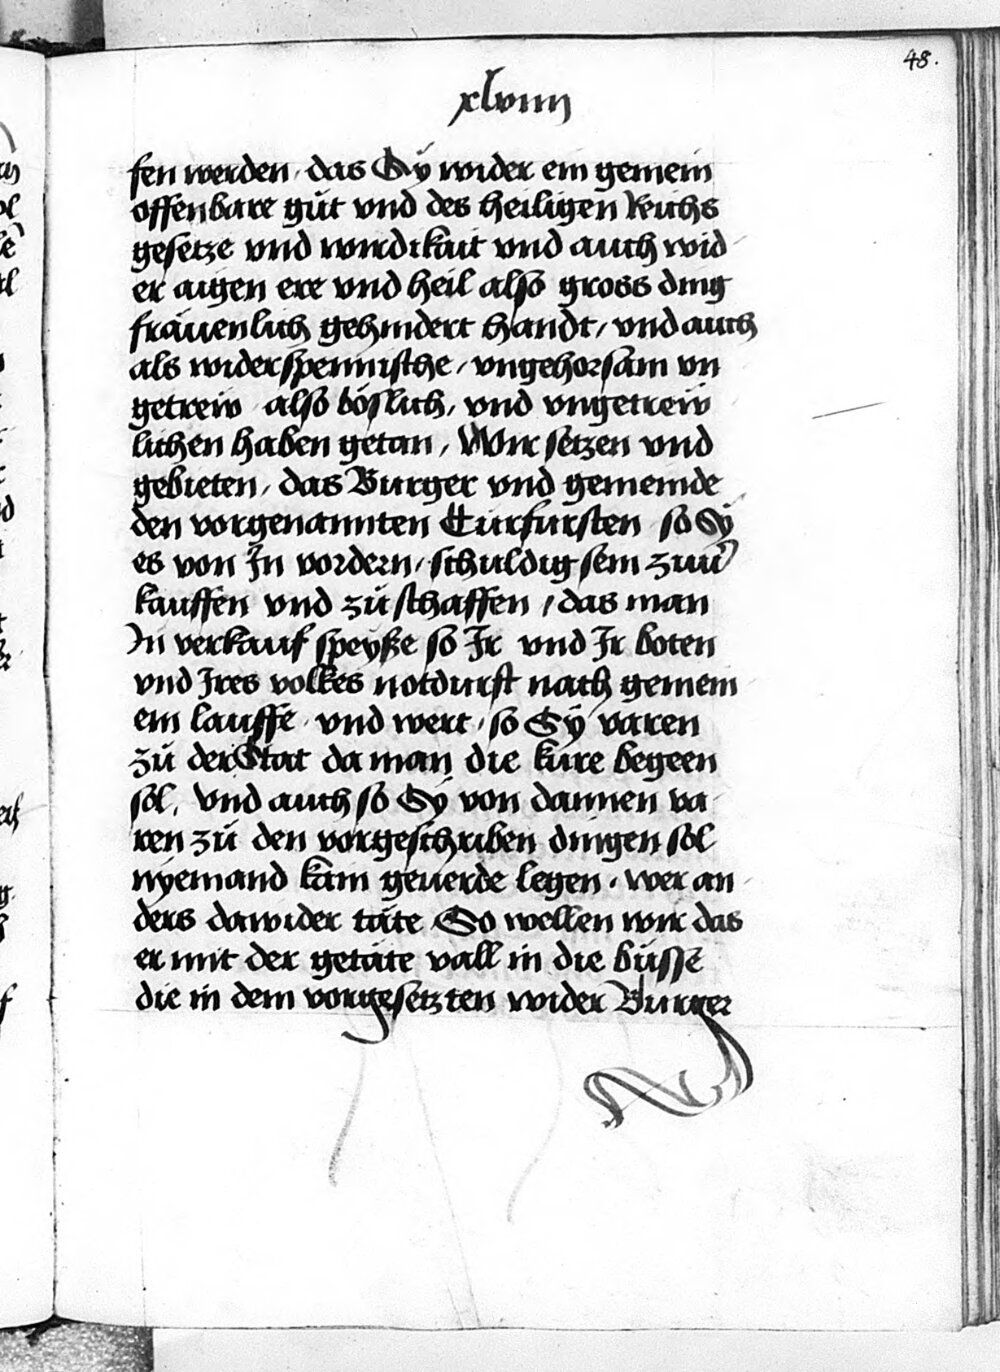 48.
xlviiij
fen werden / das Sÿ wider ein gemein
offenbare gůt vnd des heiligen Reichs
gesetze vnd wirdikait vnd auch wid
er aigen ere vnd heil also gross ding
fräuenlich gehindert handt / vnd auch
als widerspennisthe / vngehorsam vn
getrew also böslich / vnd vngetrew
lichen haben getan / Wir setzen vnd
gebieten / das Burger vnd gemeinde
den vorgenannten Curfursten so Sÿ
es von In vordern / schuldig sein zuu
kauffen vnd zů schaffen / das man
In verkauf speyße so Ir vnd Ir boten
vnd Ires volkes notdurft nach gemein
em lauffe vnd wert / so Sÿ varen
zů der Stat da man die kure begeen
sol / Vnd auch so Sÿ von dannen va
ren zů den vorgeschriben dingen sol
nyemand kain geuerde legen / wer an
ders dawider täte So wellen wir das
er mit der getäte vall in die bůsse
die in dem vorgesetzten wider Burger